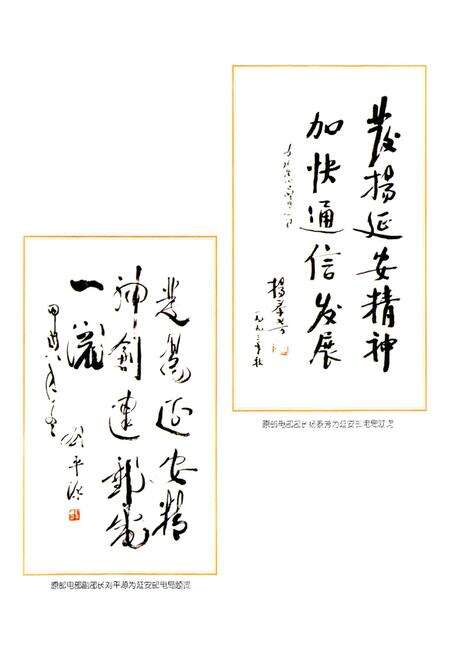 發揚延安精神
加快通信发展
杨泰芳
一九九三年秋
原邮电部部长杨泰芳为延安邮电局题词
发扬延安精
神创建邮电
一流
刘平源
原邮电部副部长刘平源为延安邮电局题词